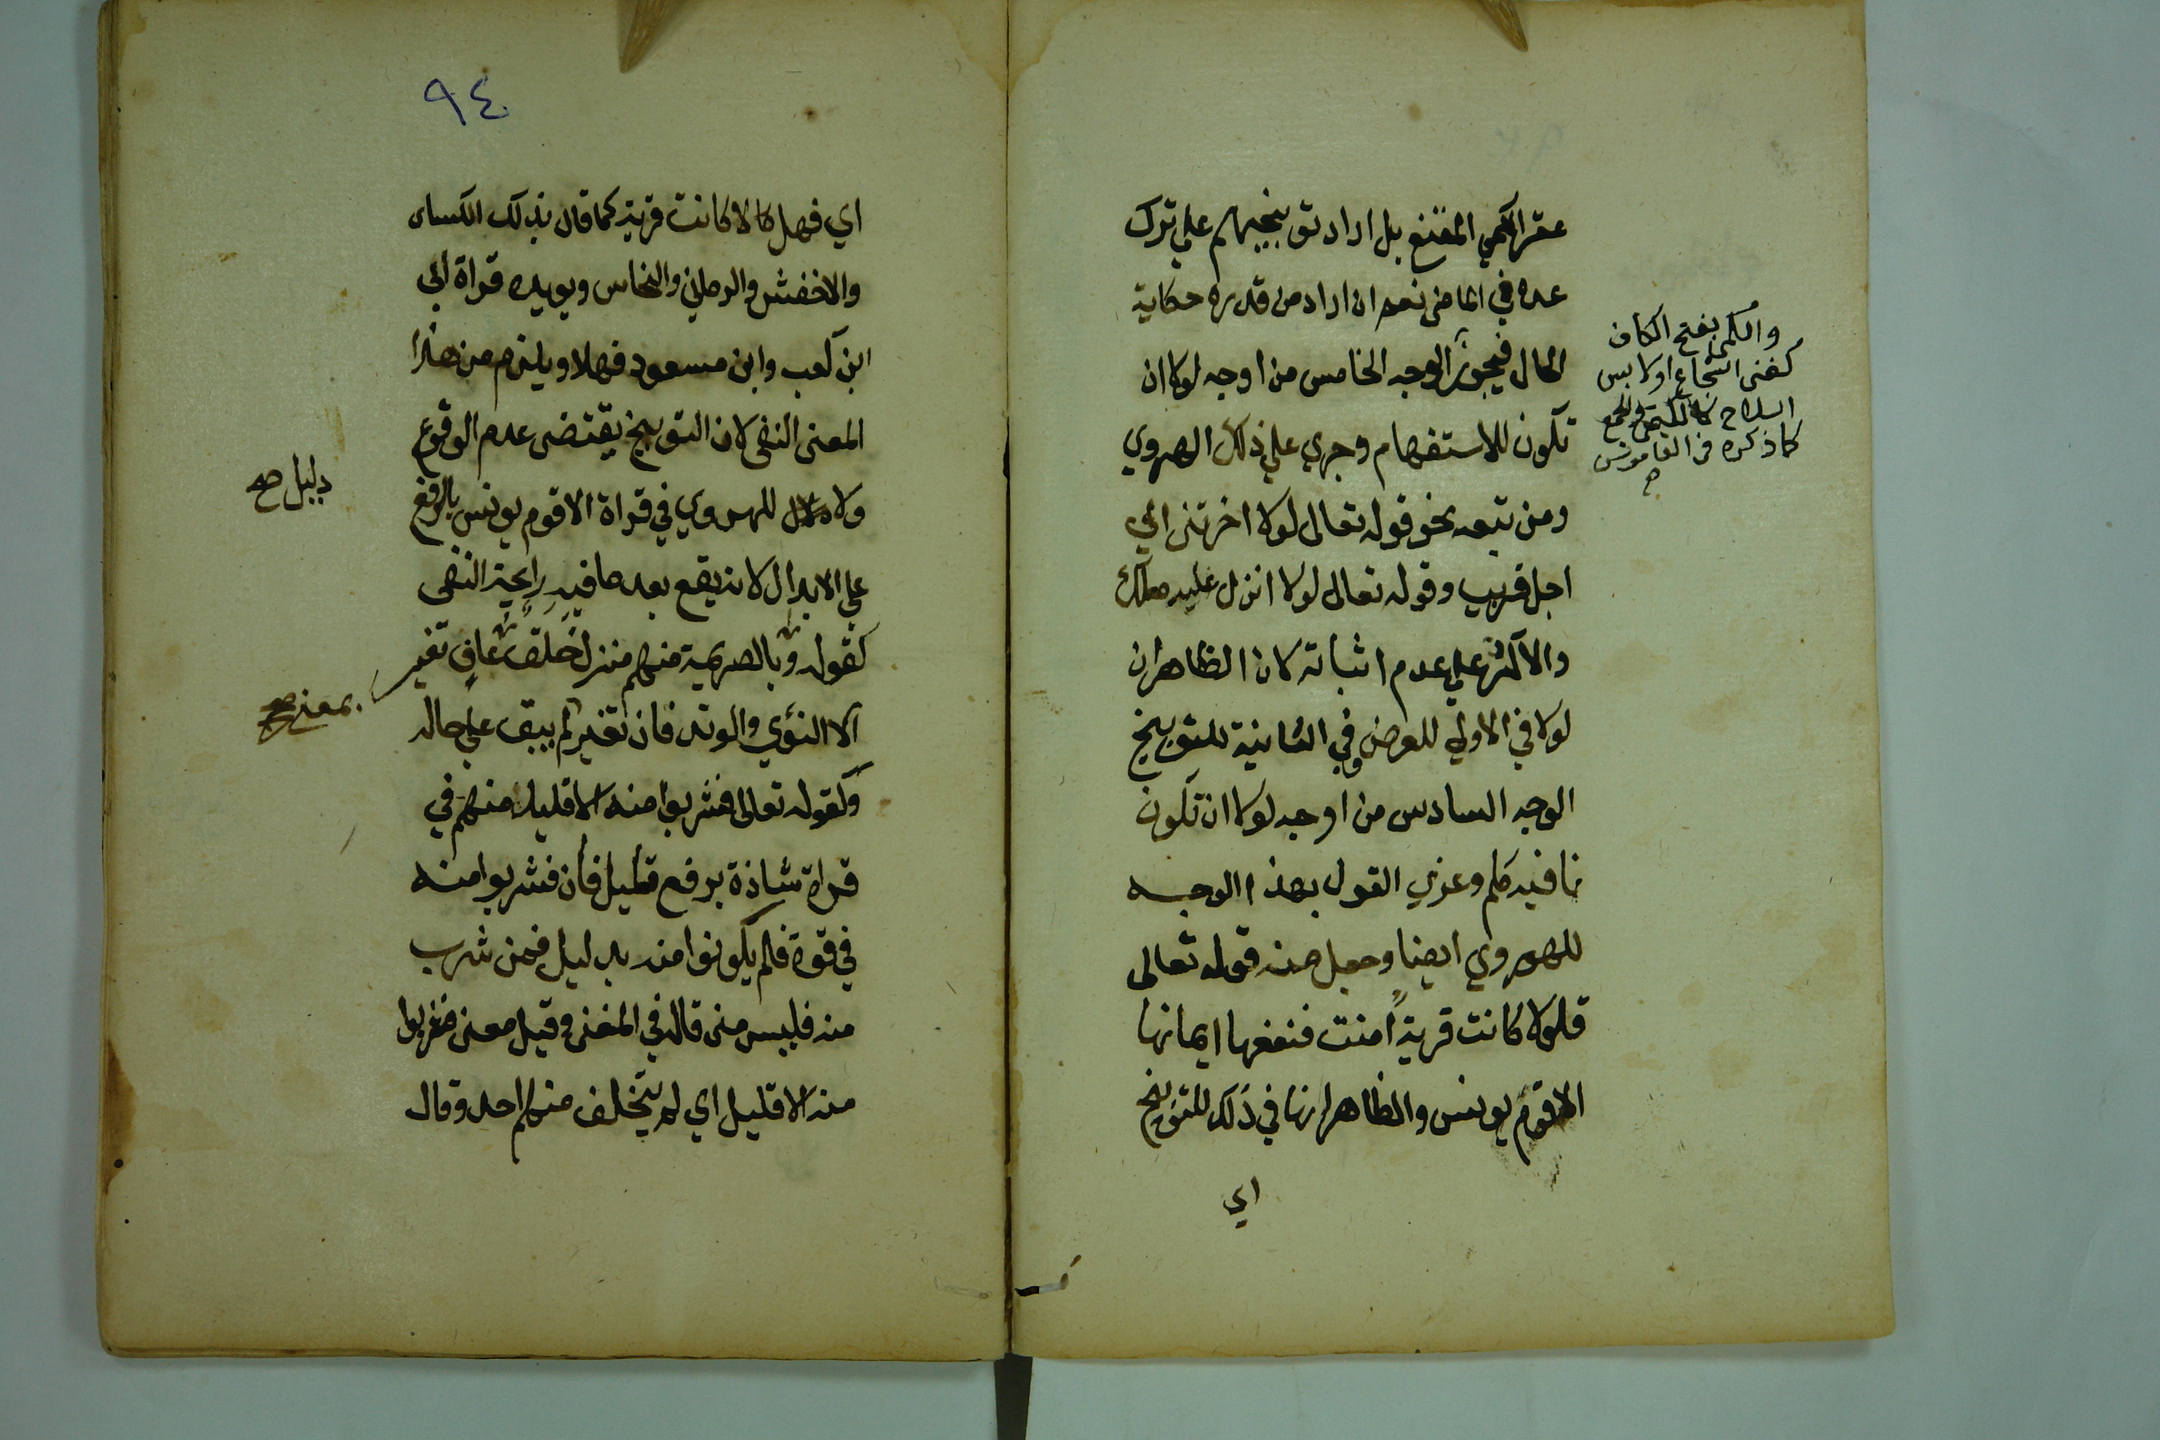 عقر الكمي المقنع بل اراد توبيخهم علي ترك
عده في الماضي نعم ان اراد من قدره حكاية
الحال فيجوز الوجه الخامس من اوجه لولا ان
تكون للاستفهام وجري علي ذلك الهروي
ومن تبعه نحو قوله تعالى لولا اخرتني الي
اجل قريب وقوله تعالى لولا انزل عليه ملك
والاكثر علي عدم اثباته لان الظاهر ان
لولا في الاولي للعرض وفي الثانية للتوبيخ
الوجه السادس من اوجه لولا ان تكون
نافيه كلم وعزي القول بهذا الوجه
للهروي ايضا وجعل منه قوله تعالى
فلولا كانت قرية امنت فنفعها ايمانها
الا قوم يونس والظاهر انها في ذلك للتوبيخ
اي
والكمي بفتح الكاف
كغني الشجاع او لابس
السلاح
كما ذكره في القاموس
٩٤
اي فهلا كانت قرية كما قال بذلك الكساى
والاخفش والرماني والنحاس ويويده قراة ابي
ابن كعب وابن مسعود فهلا ويلزم من هذا
المعنى النفى لان التوبيخ يقتضى عدم الوقوع
ولا للهروي في قراة الا قوم يونس بالرفع
علي الابدال لانه يقع بعد ما فيه رايحة النفى
كقوله وبالصريمة منهم منزل خلق عاف تغير
الا النؤي والوتد فان تغير لم يبق علي حاله
وكقوله تعالى فشربوا منه الا قليلا منهم في
قراة شاذة برفع قليل فان فشربوا منه
في قوة فلم يكونوا منه بدليل فمن شرب
منه فليس منى قاله في المغنى وقيل معنى فشربوا
منه الا قليل اي لم يتخلف منهم احد وقال
دليل صح
بمعنى صح